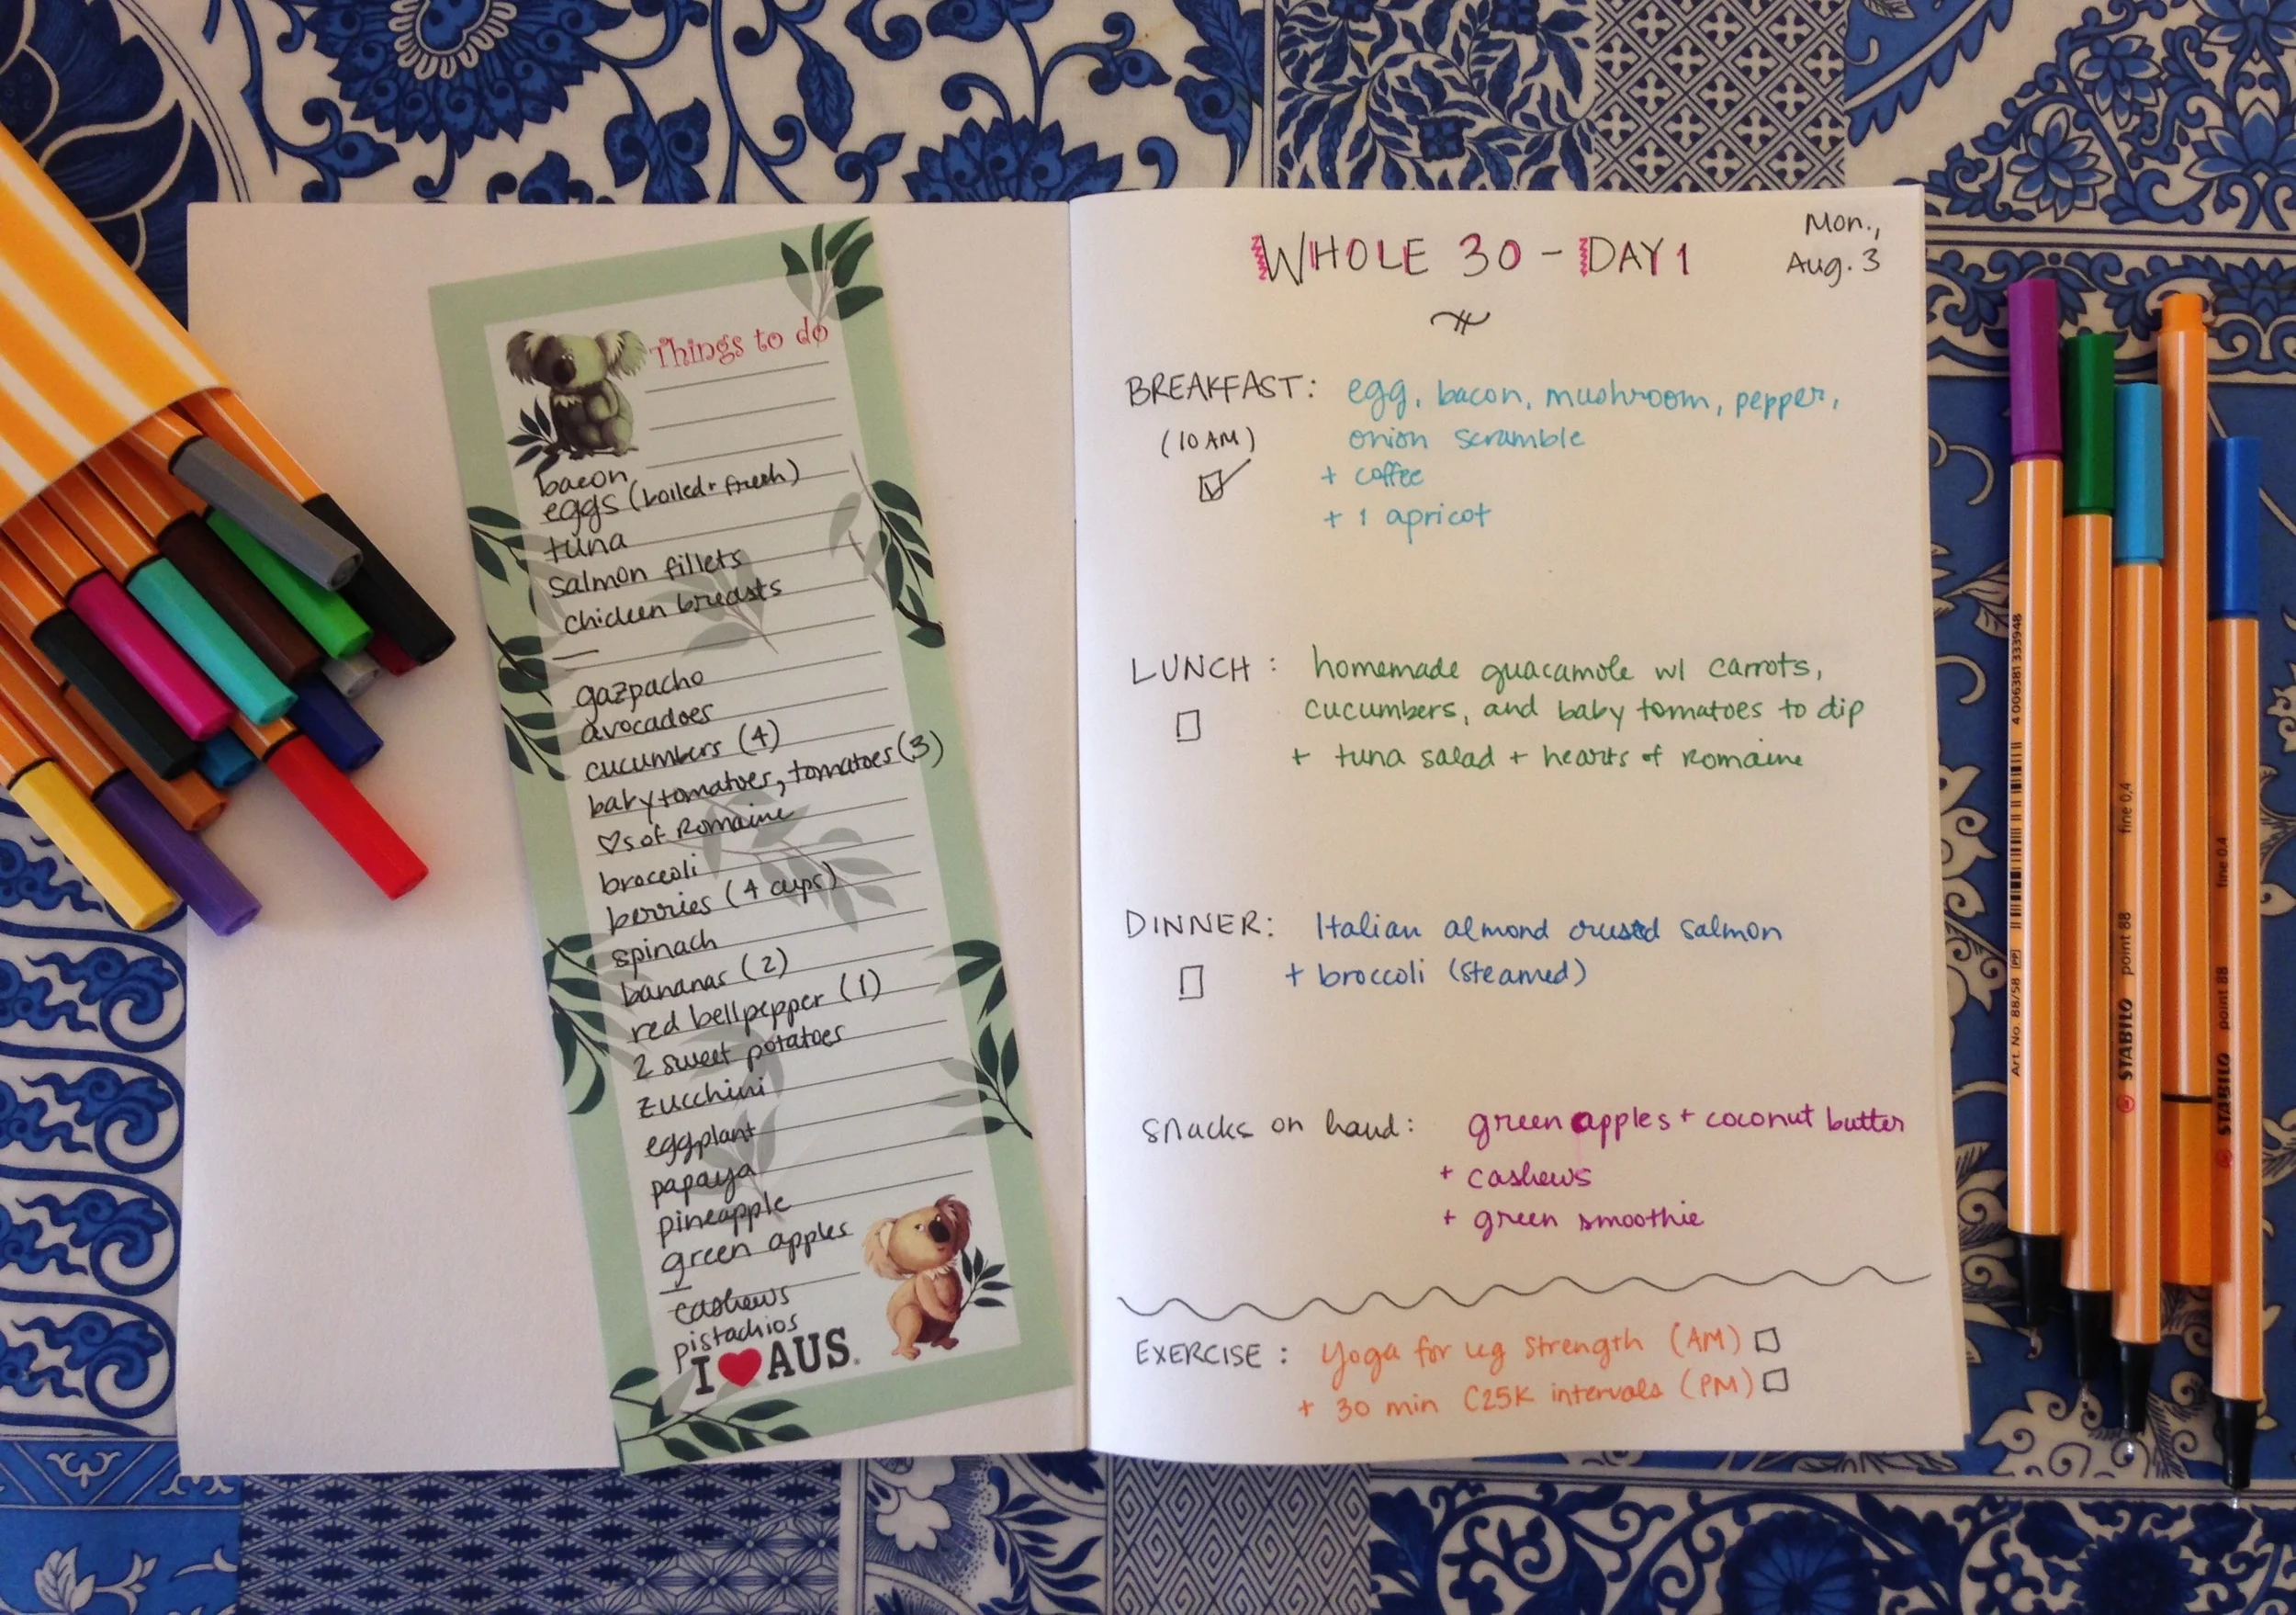 Things to do
bacon
eggs (boiled + fresh)
tuna
salmon fillets
chicken breasts
—
gazpacho
avocadoes
cucumbers (4)
baby tomatoes, tomatoes (3)
♡s of Romaine
broccoli
berries (4 cups)
spinach
bananas (2)
red bell pepper (1)
2 sweet potatoes
zucchini
eggplant
papaya
pineapple
green apples
—
cashews
pistachios
I ♥ AUS.
WHOLE 30 - DAY 1
Mon.,
Aug. 3
BREAKFAST: egg, bacon, mushroom, pepper,
(10 AM) onion scramble
+ coffee
+ 1 apricot
LUNCH: homemade guacamole w/ carrots,
cucumbers, and baby tomatoes to dip
+ tuna salad + hearts of Romaine
DINNER: Italian almond crusted salmon
+ broccoli (steamed)
snacks on hand: green apples + coconut butter
+ cashews
+ green smoothie
EXERCISE: Yoga for leg strength (AM)
+ 30 min C25K intervals (PM)
Art. No 88/58 4006381333948
STABILO point 88 fine 0,4
STABILO point 88 fine 0,4